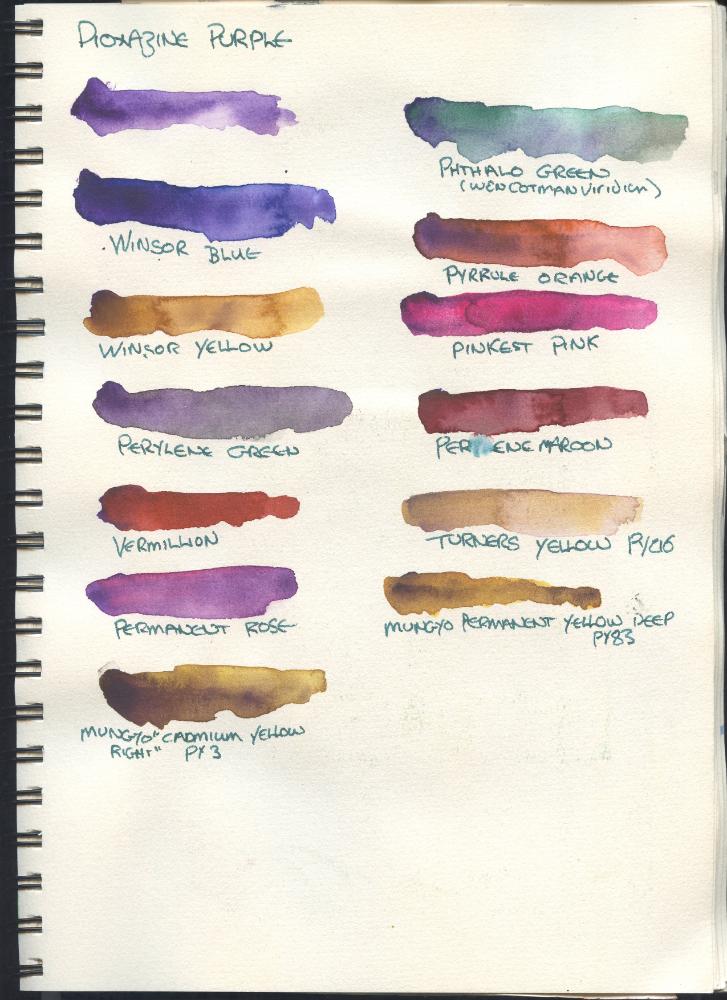 DIOXAZINE PURPLE
WINSOR BLUE
WINSOR YELLOW
PERYLENE GREEN
VERMILLION
PERMANENT ROSE
MUNGYO "CADMIUM YELLOW
RIGHT" PY3
PHTHALO GREEN
PYRRULE ORANGE
PINKEST PINK
PER ENE MAROON
TURNERS YELLOW
MUNGYO PERMANENT YELLOW DEEP
PY83